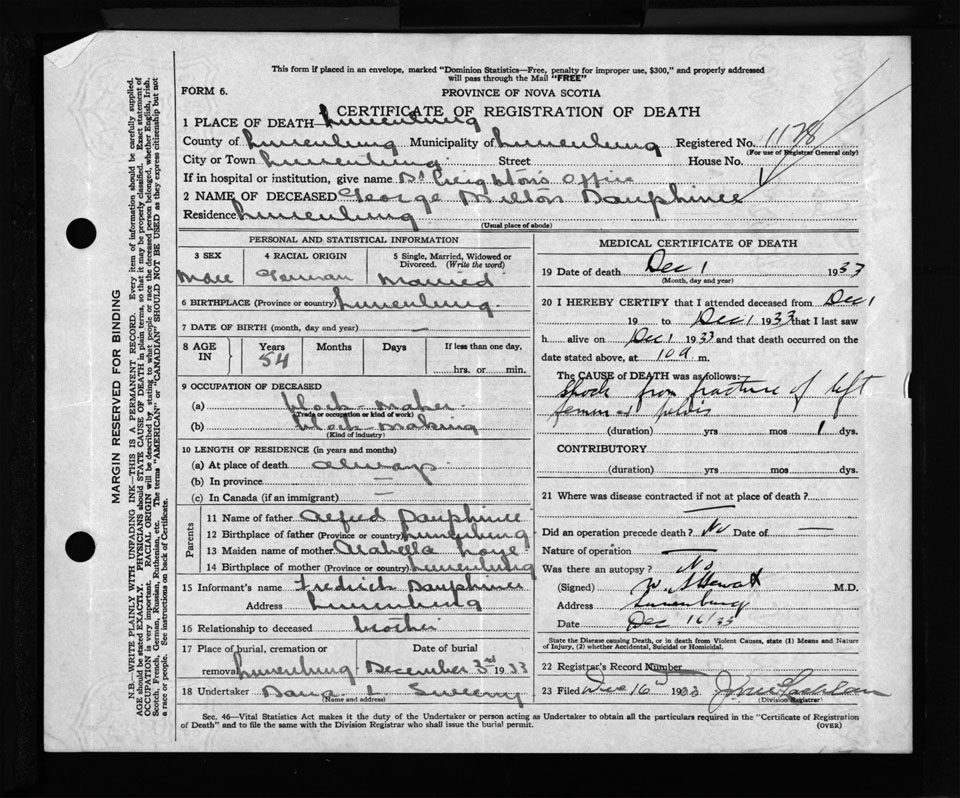 This form if placed in an envelope, marked "Dominion Statistics—Free, penalty for improper use, $300," and properly addressed
will pass through the Mail "FREE"
FORM 6.
PROVINCE OF NOVA SCOTIA
CERTIFICATE OF REGISTRATION OF DEATH
1 PLACE OF DEATH— Lunenburg
County of Lunenburg Municipality of Lunenburg Registered No. 1178
(For use of Registrar General only)
City or Town Lunenburg Street House No.
If in hospital or institution, give name Dr Creighton's Office
2 NAME OF DECEASED George Milton Dauphinee
Residence Lunenburg
(Usual place of abode)
PERSONAL AND STATISTICAL INFORMATION
3 SEX 4 RACIAL ORIGIN 5 Single, Married, Widowed or
Divorced. (Write the word)
Male German Married
6 BIRTHPLACE (Province or country) Lunenburg
7 DATE OF BIRTH (month, day and year) —
8 AGE IN Years Months Days If less than one day,
54 hrs. or min.
9 OCCUPATION OF DECEASED
(a) block-maker
(Trade or occupation or kind of work)
(b) block-making
(Kind of industry)
10 LENGTH OF RESIDENCE (in years and months)
(a) At place of death always
(b) In province —
(c) In Canada (if an immigrant) —
Parents
11 Name of father Alfred Dauphinee
12 Birthplace of father (Province or country) Lunenburg
13 Maiden name of mother Arabella
14 Birthplace of mother (Province or country) Lunenburg
15 Informant's name Fredrick Dauphinee
Address Lunenburg
16 Relationship to deceased brother
17 Place of burial, cremation or Date of burial
removal Lunenburg December 3rd 1933
18 Undertaker Dana L Sweeny
(Name and address)
MEDICAL CERTIFICATE OF DEATH
19 Date of death Dec 1 1933
(Month, day and year)
20 I HEREBY CERTIFY that I attended deceased from Dec 1
19 to Dec 1 1933 that I last saw
h alive on Dec 1 1933 and that death occurred on the
date stated above, at 10 a m.
The CAUSE of DEATH was as follows:
Shock from fracture of left
femur & pelvis
(duration) yrs mos 1 dys.
CONTRIBUTORY
(duration) yrs mos dys.
21 Where was disease contracted if not at place of death?
—
Did an operation precede death? No Date of —
Nature of operation —
Was there an autopsy? No
(Signed) W. A Hewat M.D.
Address Lunenburg
Date Dec 16/33
State the Disease causing Death, or in death from Violent Causes, state (1) Means and Nature
of Injury, (2) whether Accidental, Suicidal or Homicidal.
22 Registrar's Record Number
23 Filed Dec 16 1933
(Division Registrar)
Sec. 46—Vital Statistics Act makes it the duty of the Undertaker or person acting as Undertaker to obtain all the particulars required in the "Certificate of Registration
of Death" and to file the same with the Division Registrar who shall issue the burial permit.
(OVER)
MARGIN RESERVED FOR BINDING
N.B.—WRITE PLAINLY WITH UNFADING INK—THIS IS A PERMANENT RECORD. Every item of information should be carefully supplied.
AGE should be stated EXACTLY. PHYSICIANS should STATE CAUSE OF DEATH in plain terms, so that it may be properly classified. Exact statement of
OCCUPATION is very important. RACIAL ORIGIN will be described by stating to what people or race the deceased person belonged, whether English, Irish,
Scotch, French, German, Russian, Ruthenian, etc. The terms "AMERICAN" or "CANADIAN" SHOULD NOT BE USED as they express citizenship but not
a race or people. See instructions on back of Certificate.